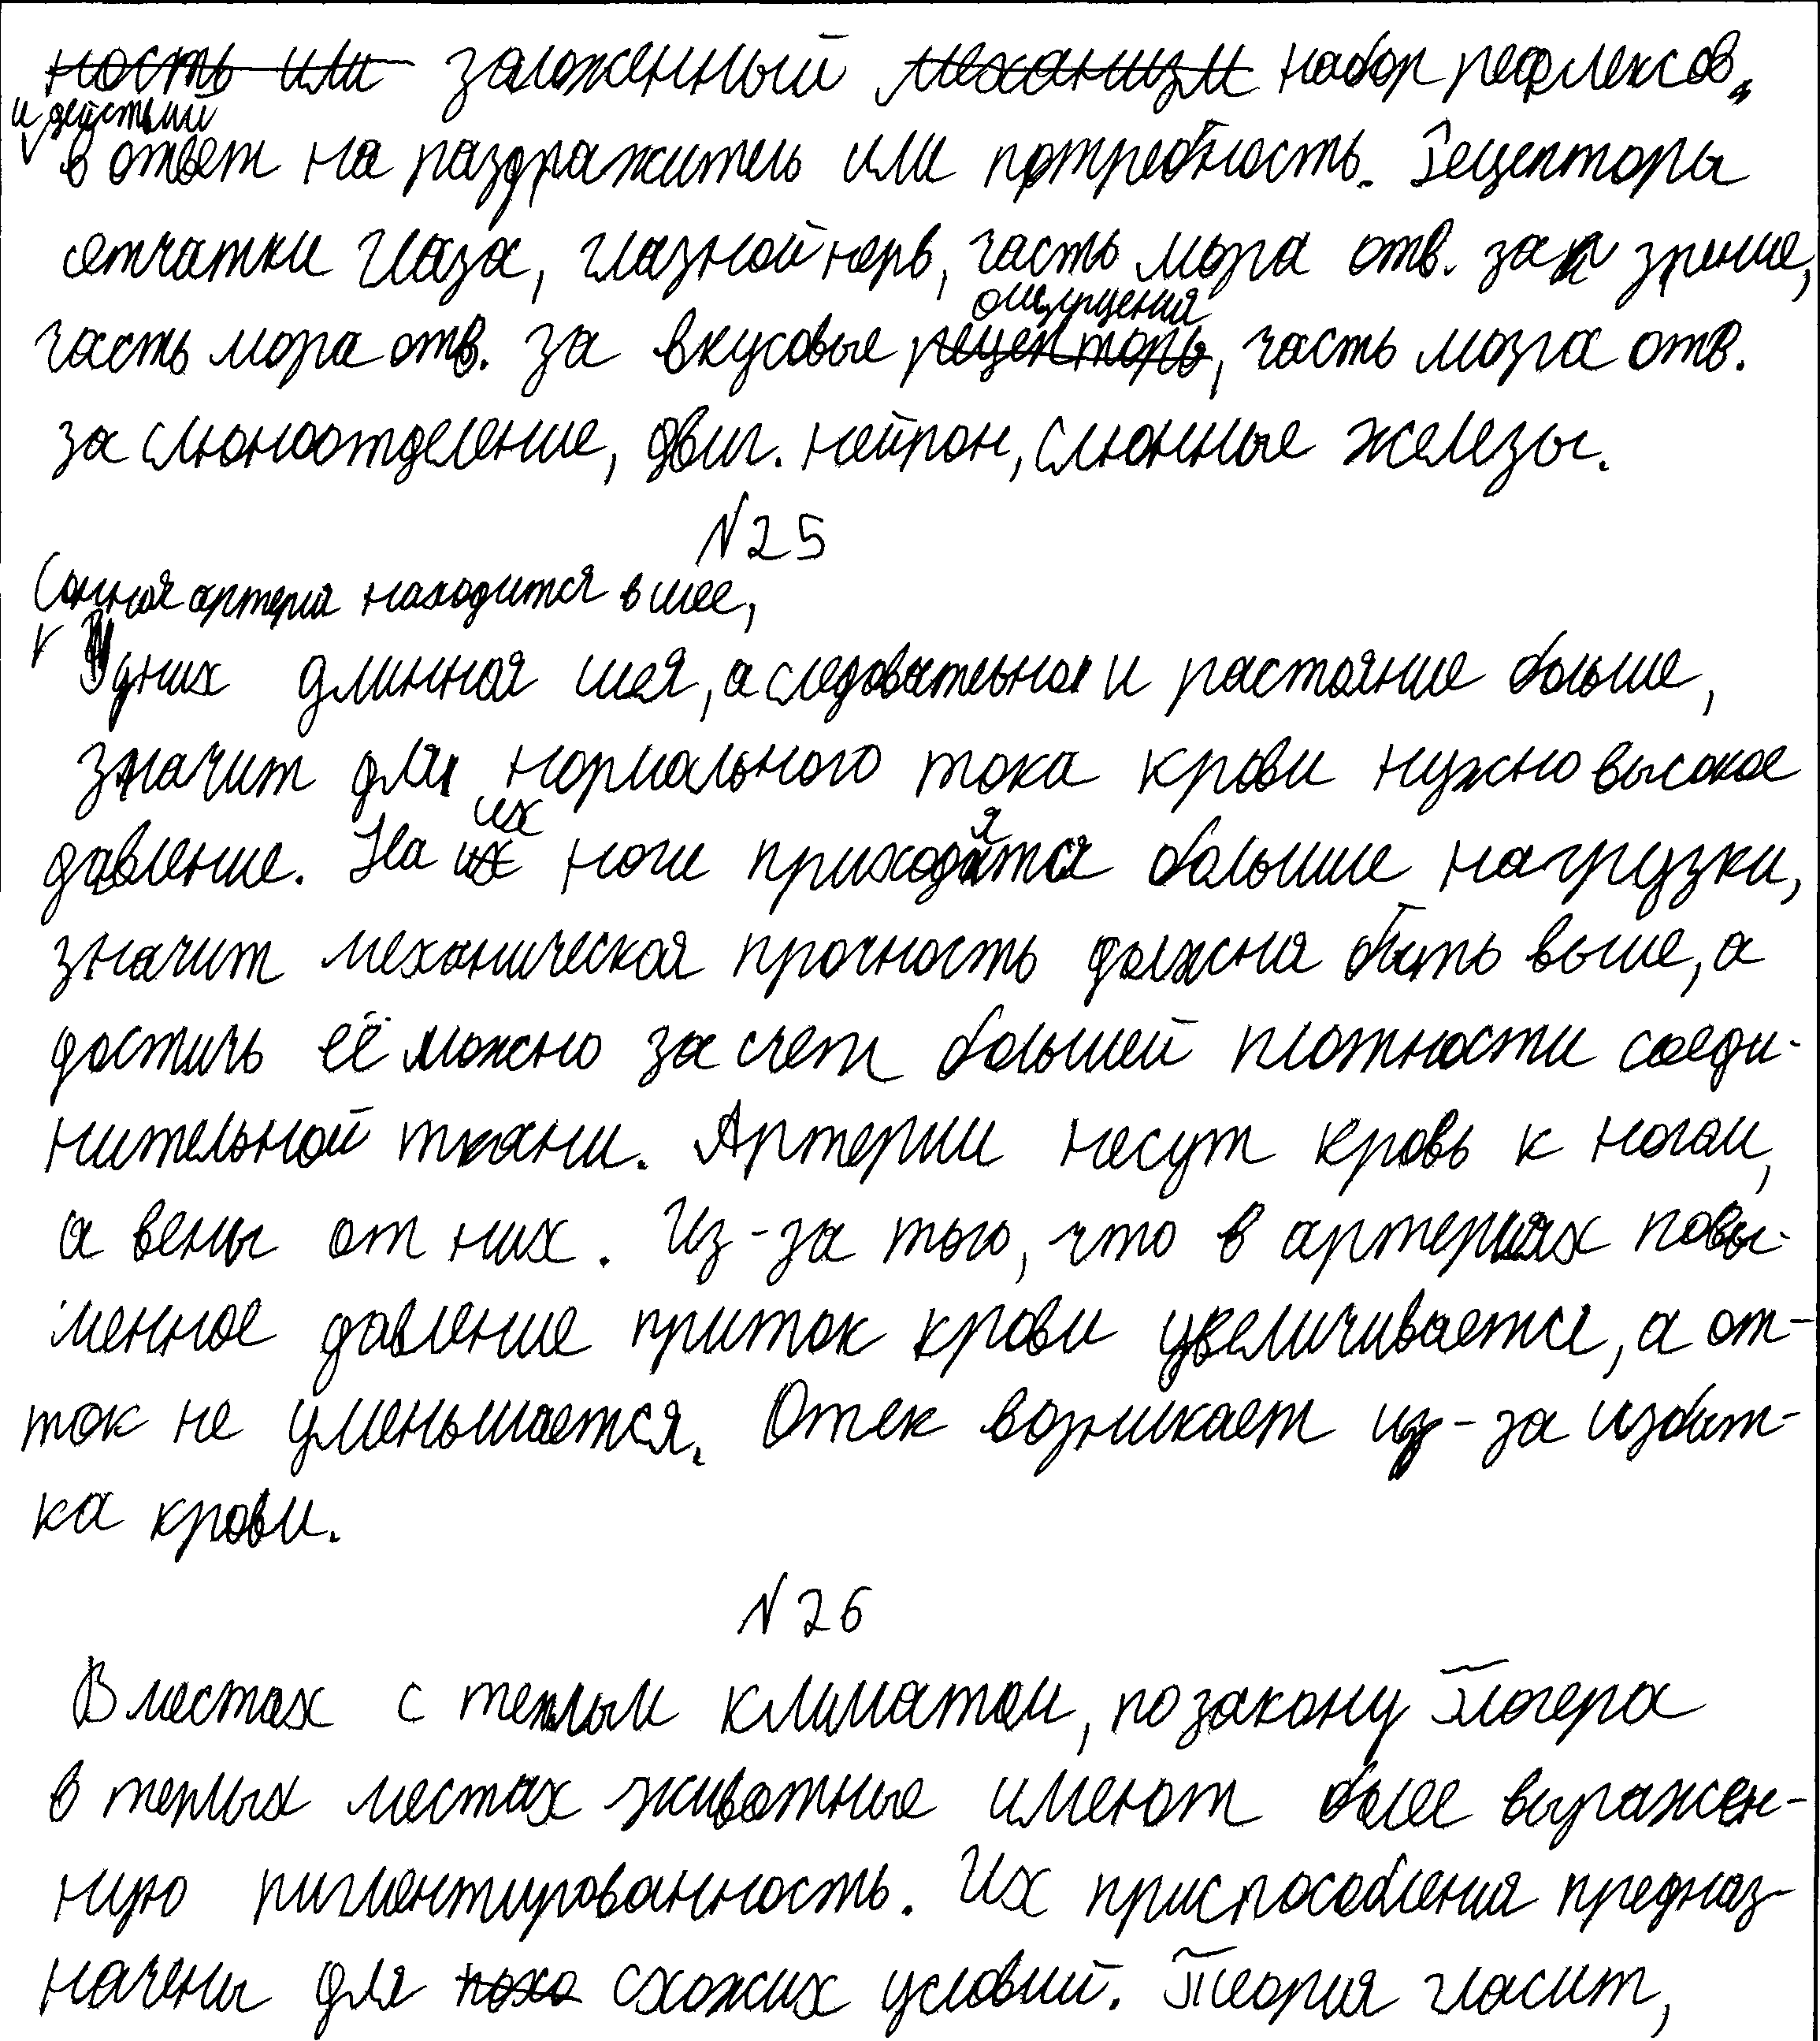 ность или заложенный механизм набор рефлексов,
и действий
в ответ на раздражитель или потребность. Рецепторы
сетчатки глаза, глазной нерв, часть мозга отв. за зрение,
ощущения
часть мозга отв. за вкусовые рецепторы, часть мозга отв.
за слюноотделение, двиг. нейрон, слюнные железы.
№25
Сонная артерия находится в шее,
У них длинная шея, а следовательно и растояние больше,
значит для нормального тока крови нужно высокое
давление. На их ноги приходятся большие нагрузки,
значит механическая прочность должна быть выше, а
достичь её можно за счет большей плотности соеди-
нительной ткани. Артерии несут кровь к ногам,
а вены от них. Из-за того, что в артериях повы-
шенное давление приток крови увеличивается, а от-
ток не уменьшается. Отек возникает из-за избыт-
ка крови.
№26
В местах с теплым климатом, по закону Глогера
в теплых местах животные имеют более выражен-
ную пигментированность. Их приспособления предназ-
начены для похо схожих условий. Теория гласит,